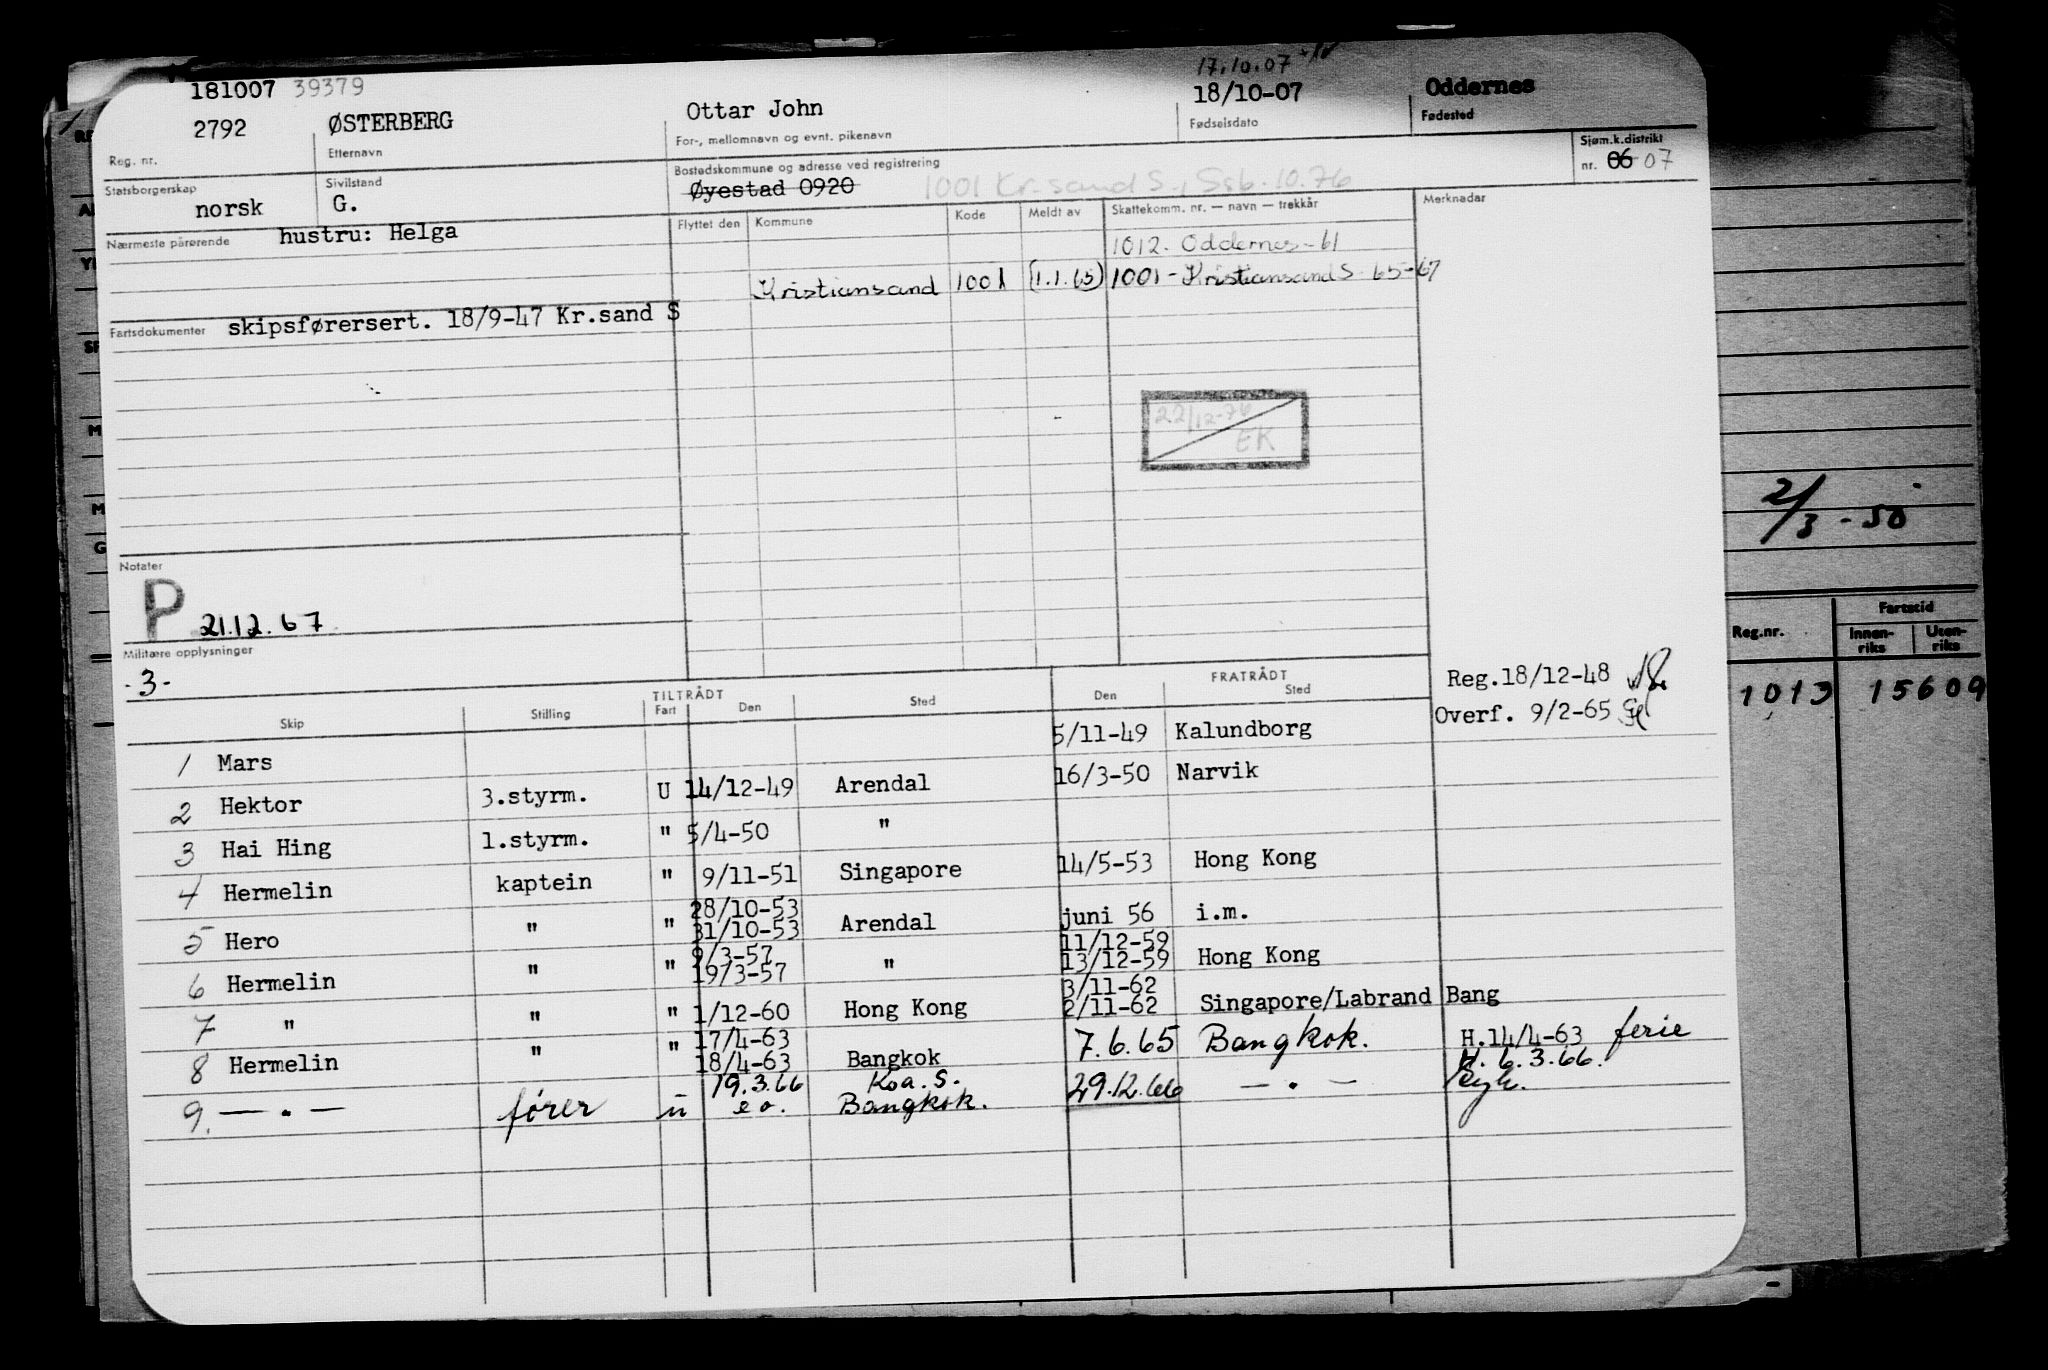 17.10.07
181007 39379 18/10-07 Oddernes
2792 ØSTERBERG Ottar John
Reg. nr. Etternavn For-, mellomnavn og evnt. pikenavn Fødselsdato Fødested
Statsborgerskap Sivilstand Bostedskommune og adresse ved registrering Sjøm.k.distrikt
norsk G. Øyestad 0920 1001 Kr.sand S., Ssb. 10.76 nr. 06 07
Nærmeste pårørende hustru: Helga Flyttet den Kommune Kode Meldt av Skattekomm. nr. — navn — trekkår Merknader
1012. Oddernes-61
Kristiansand 1001 (1.1.65) 1001 - Kristiansand S 65-67
Fartsdokumenter skipsførersert. 18/9-47 Kr.sand S
22/12-76
EK
2/3 - 50
Notater
P 21.12.67
Militære opplysninger
-3-
Reg.nr. Fartstid
Innen-riks Uten-riks
1013 15609
TILTRÅDT FRATRÅDT
Skip Stilling Fart Den Sted Den Sted
Reg.18/12-48
Overf. 9/2-65
1 Mars 5/11-49 Kalundborg
2 Hektor 3.styrm. U 14/12-49 Arendal 16/3-50 Narvik
3 Hai Hing 1.styrm. " 5/4-50 "
4 Hermelin kaptein " 9/11-51 Singapore 14/5-53 Hong Kong
28/10-53
5 Hero " " 31/10-53 Arendal juni 56 i.m.
9/3-57 11/12-59
6 Hermelin " " 19/3-57 " 13/12-59 Hong Kong
3/11-62
7 " " " 1/12-60 Hong Kong 2/11-62 Singapore/Labrand Bang
17/4-63
8 Hermelin " " 18/4-63 Bangkok 7.6.65 Bangkok. H.14/4-63 ferie
19.3.66 Koa. S. H. 6.3.66.
9. — . — fører u e o. Bangkok. 29.12.66 — . — syk.